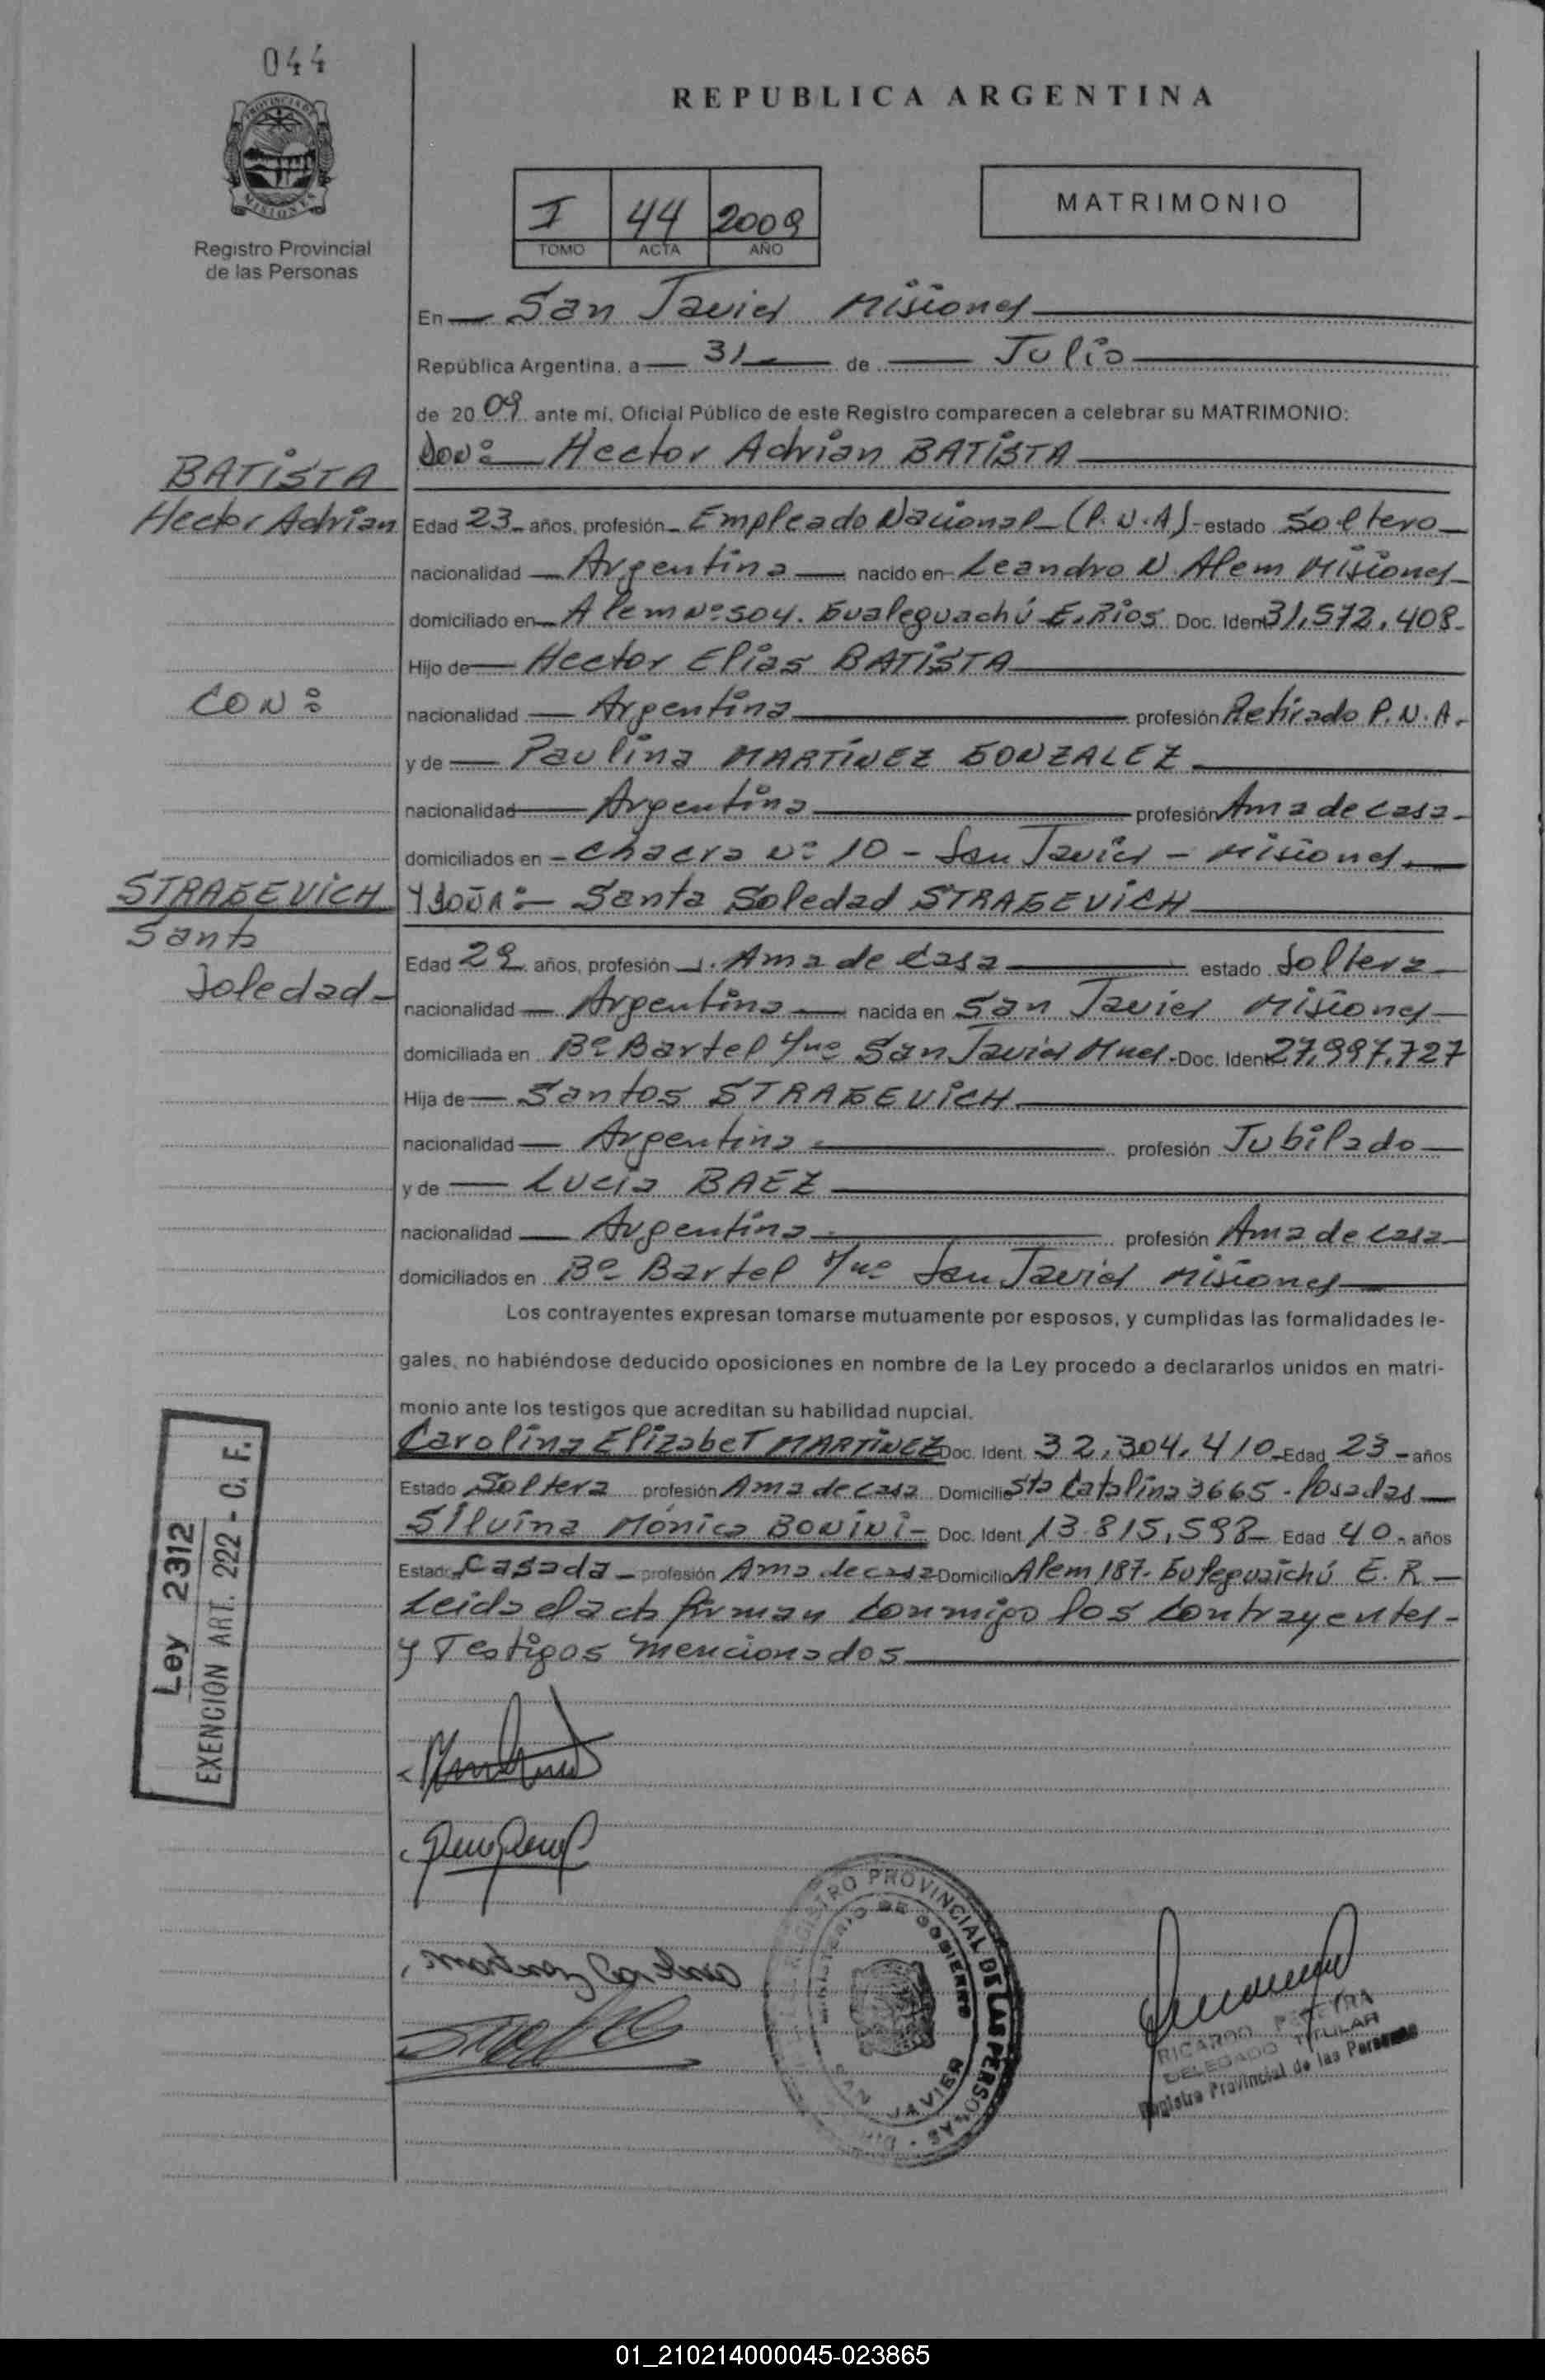 044
PROVINCIA DE
MISIONES
Registro Provincial
de las Personas
REPUBLICA ARGENTINA
I 44 2009
TOMO ACTA AÑO
MATRIMONIO
En San Javier Misiones
República Argentina, a 31 de Julio
de 2009 ante mí, Oficial Público de este Registro comparecen a celebrar su MATRIMONIO:
BATISTA
Hector Adrian
Don: Hector Adrian BATISTA
Edad 23 años, profesión Empleado Nacional (P.N.A) estado Soltero
nacionalidad Argentina nacido en Leandro N Alem Misiones
domiciliado en Alem Nº 504. Gualeguachú E. Rios Doc. Ident 31,572,408
Hijo de Hector Elias BATISTA
CON:
nacionalidad Argentina profesión Retirado P.N.A.
y de Paulina MARTÍNEZ GONZALEZ
nacionalidad Argentina profesión Ama de casa
domiciliados en Chacra Nº 10 - San Javier - Misiones
STRAGEVICH
Santa
Soledad
Y DOÑA: Santa Soledad STRAGEVICH
Edad 29 años, profesión Ama de Casa estado Soltera
nacionalidad Argentina nacida en San Javier Misiones
domiciliada en Bº Bartel San Javier Mnes. Doc. Ident 27,997,727
Hija de Santos STRAGEVICH
nacionalidad Argentina profesión Jubilado
y de Lucia BAEZ
nacionalidad Argentina profesión Ama de casa
domiciliados en Bº Bartel San Javier Misiones
Los contrayentes expresan tomarse mutuamente por esposos, y cumplidas las formalidades le-
gales, no habiéndose deducido oposiciones en nombre de la Ley procedo a declararlos unidos en matri-
monio ante los testigos que acreditan su habilidad nupcial.
Carolina ElizabeT MARTÍNEZ Doc. Ident. 32,304,410 Edad 23 años
Estado Soltera profesión Ama de casa Domicilio Sta Catalina 3665 - Posadas
Silvina Mónica BONINI Doc. Ident. 13.815,598 Edad 40 años
Estado Casada profesión Ama de casa Domicilio Alem 187. Guleguaichú E.R
Leida el acta firman conmigo los contrayentes
y Testigos mencionados
Ley 2312
EXENCION ART. 222 - C. F.
REGISTRO PROVINCIAL DE LAS PERSONAS
MINISTERIO DE GOBIERNO
SAN JAVIER
RICARDO PEREYRA
DELEGADO TITULAR
Registro Provincial de las Personas
01_210214000045-023865